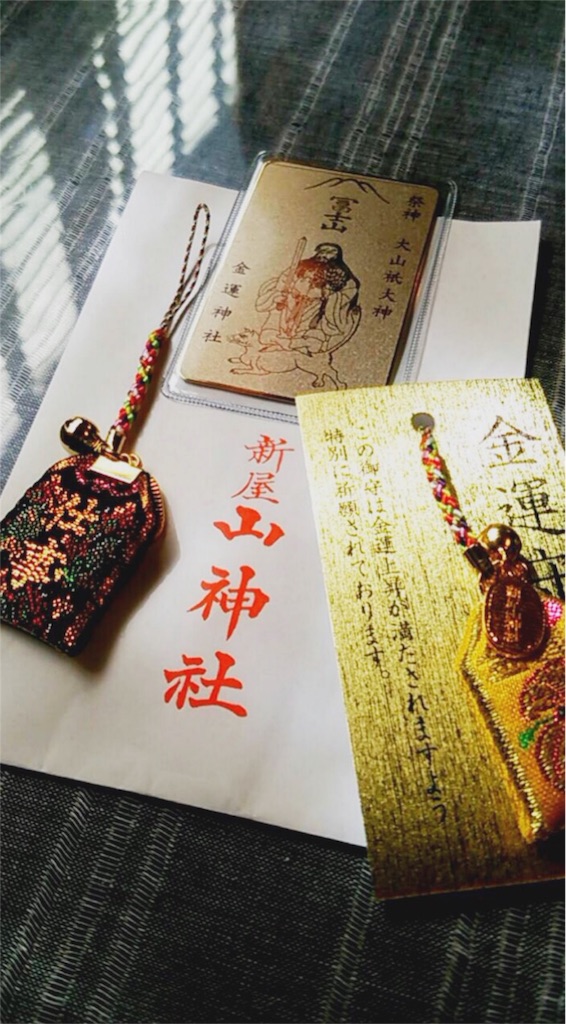 祭神 大山祇大神
冨士山
金運神社
新屋
山神社
金運守
この御守は金運上昇が満たされますよう
特別に祈願されております。